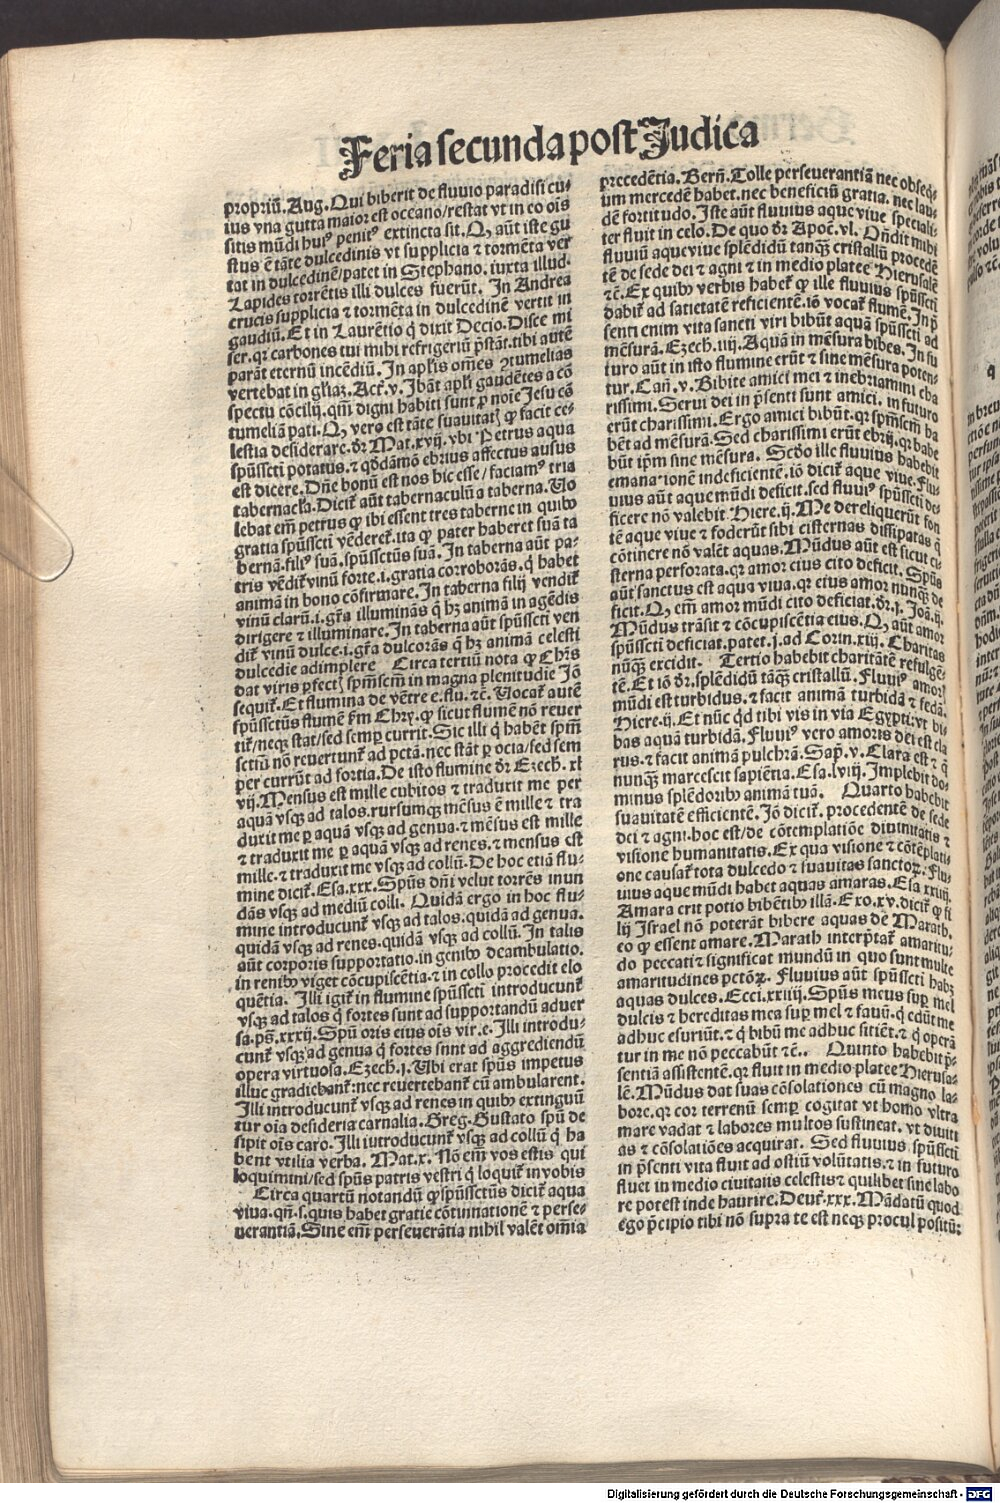 Feria secunda post Judica
propriū. Aug. Qui biberit de fluuio paradisi cu-
ius vna gutta maior est oceano/restat vt in eo oīs
sitis mūdi huiꝰ penitꝰ extincta sit. Q, aūt iste gu
stus ē tāte dulcedinis vt supplicia ⁊ tormēta ver
tat in dulcedinē/patet in Stephano. iuxta illud.
Lapides torrētis illi dulces fuerūt. In Andrea
crucis supplicia ⁊ tormēta in dulcedinē vertit in
gaudiū. Et in Laurētio q̇ dixit Decio. Disce mi
ser. qꝛ carbones tui mihi refrigeriū p̄stāt. tibi autē
parāt eternū incēdiū. In apl̓is om̄es ꝯtumelias
vertebat in gl̓iaꝫ. Act̓. v. Ibāt apl̓i gaudētes a cō
spectu cōcilij. qm̄ digni habiti sunt ꝓ noīe Jesu cō
tumeliā pati. Q, vero est tāte suauitat̓ ꝙ facit ce-
lestia desiderare. dr̄ Mat. xvij. vbi Petrus aqua
spūssctī potatus. ⁊ qōdāmō ebrius affectus ausus
est dicere. Dn̄e bonū est nos hic esse/faciamꝰ tria
tabernacl̓a. Dicit̄ aūt tabernaculū a taberna. Uo
lebat em̄ petrus ꝙ ibi essent tres taberne in quibꝰ
gratia spūssctī vēderet̄. ita ꝙ pater haberet suā ta
bernā. filiꝰ suā. spūssctūs suā. In taberna aūt pa-
tris vēdit̄ vinū forte. i. gratia corroborās. q̄ habet
animā in bono cōfirmare. In taberna filij vendit̄
vinū clarū. i. gr̄a illuminās q̄ hꝫ animā in agēdis
dirigere ⁊ illuminare. In taberna aūt spūssctī ven
dit̄ vinū dulce. i. gr̄a dulcorās q̄ hꝫ animā celesti
dulcedie adimplere   Circa tertiū nota ꝙ Chr̄s
dat viris ꝑfect̓ spm̄scm̄ in magna plenitudie Jō
sequit̄. Et flumina de vētre e. flu. ⁊c. Uocat̄ autē
spūssctūs flumē ẜm Chry. ꝙ sicut flumē nō reuer
tit̄/neqꝫ stat/sed semꝑ currit. Sic illi q̇ habēt spm̄
sctīū nō reuertunt̄ ad pctā. nec stāt ꝑ ocia/sed sem
per currūt ad fortia. De isto flumine dr̄ Ezech. xl
vij. Mensus est mille cubitos ⁊ traduxit me per
aquā vsqꝫ ad talos. rursumqꝫ mēsus ē mille ⁊ tra
duxit me ꝑ aquā vsqꝫ ad genua. ⁊ mēsus est mille
⁊ traduxit me ꝑ aquā vsqꝫ ad renes. ⁊ mensus est
mille. ⁊ traduxit me vsqꝫ ad collū. De hoc etiā flu-
mine dicit̄. Esa. xxx. Spūs dn̄i velut torrēs inun
dās vsqꝫ ad mediū colli. Quidā ergo in hoc flu-
mine introducunt̄ vsqꝫ ad talos. quidā ad genua.
quidā vsqꝫ ad renes. quidā vsqꝫ ad collū. In talis
aūt corporis supportatio. in genibꝰ deambulatio.
in renibꝰ viget cōcupiscētia. ⁊ in collo procedit elo
quētia. Illi igit̄ in flumine spūssctī introducunt̄
vsqꝫ ad talos q̇ fortes sunt ad supportandū aduer
sa. ps̄. xxxij. Spū oris eius oīs vir. e. Illi introdu-
cunt̄ vsqꝫ ad genua q̇ fortes snnt ad aggrediendū
opera virtuosa. Ezech. j. Ubi erat spūs impetus
illuc gradiebant̄: nec reuertebant̄ cū ambularent.
Illi introducunt̄ vsqꝫ ad renes in quibꝰ extinguū
tur oīa desideria carnalia. Greg. Gustato spū de
sipit oīs caro. Illi iutroducunt̄ vsqꝫ ad collū q̇ ha
bent vtilia verba. Mat. x. Nō em̄ vos estis qui
loquimini/sed spūs patris vestri q̇ loquit̄ in vobis
Circa quartū notandū ꝙ spūssctūs dicit̄ aqua
viua. qn̄. s. quis habet gratie cōtinnationē ⁊ perse-
uerantiā. Sine em̄ perseuerātia nihil valēt om̄ia
precedētia. Bern̄. Tolle perseuerantiā nec obseq̇-
um mercedē habet. nec beneficiū gratia. nec lau-
dē fortitudo. Iste aūt fluuius aque viue speciali-
ter fluit in celo. De quo dr̄ Apoc̄. vl. Ondit mihi
fluuiū aque viue splēdidū tanqꝫ cristallū procedē
tē de sede dei ⁊ agni ⁊ in medio platee Hierusalē
⁊c̄. Ex quibꝰ verbis habet̄ ꝙ ille fluuius spūssctī
dabit̄ ad satietatē reficientē. iō vocat̄ flumē. In p̄
senti enim vita sancti viri bibūt aquā spūssctī ad
mēsurā. Ezech. iiij. Aquā in mēsura bibes. In fu
turo aūt in isto flumine erūt ⁊ sine mēsura poten-
tur. Can̄. v. Bibite amici mei ⁊ inebriamini cha
rissimi. Serui dei in p̄senti sunt amici. in futuro
erūt charissimi. Ergo amici bibūt. qꝛ spm̄scm̄ ha
bēt ad mēsurā. Sed charissimi erūt ebrij. qꝛ habe
būt ip̄m sine mēsura. Scdō ille fluuius habebit
emanationē indeficientē. iō dicit̄ aque viue. Flu-
uius aūt aque mūdi deficit. sed fluuiꝰ spūssctī de-
ficere nō valebit Hiere. ij. Me dereliquerūt fon
tē aque viue ⁊ foderūt sibi cisternas dissipatas q̄
cōtinere nō valēt aquas. Mūdus aūt est sicut ci-
sterna perforata. qꝛ amor eius cito deficit. Spūs
aūt sanctus est aqua viua. qꝛ eius amor nunqꝫ de
ficit. Q, em̄ amor mūdi cito deficiat. dr̄. j. Joā. ij.
Mūdus trāsit ⁊ cōcupiscētia eius. Q, aūt amor
spūssctī deficiat. patet. j. ad Corin. xiij. Charitas
nūqꝫ excidit.   Tertio habebit charitātē refulgē-
tē. Et iō dr̄. splēdidū tāqꝫ cristallū. Fluuiꝰ amoꝝ
mūdi est turbidus. ⁊ facit animā turbidā ⁊ fedā.
Hiere. ij. Et nūc q̇d tibi vis in via Egypti. vt bi-
bas aquā turbidā. Fluuiꝰ vero amoris dei est cla
rus. ⁊ facit animā pulchrā. Sap̄. v. Clara est ⁊ q̄
nunqꝫ marcescit sapiētia. Esa. lviij. Implebit do-
minus splēdoribꝰ animā tuā.   Quarto habebit
suauitatē efficientē. Jō dicit̄. procedentē de sede
dei ⁊ agni. hoc est/de cōtemplatiōe diuinitatis ⁊
visione humanitatis. Ex qua visione ⁊ cōtēplati-
one causat̄ tota dulcedo ⁊ suauitas sanctoꝝ. Flu-
uius aque mūdi habet aquas amaras. Esa xxiiij.
Amara erit potio bibētibꝰ illā. Exo. xv. dicit̄ ꝙ fi
lij Israel nō poterāt bibere aquas de Marath,
eo ꝙ essent amare. Marath interp̄tat̄ amaritu-
do peccati ⁊ significat mundū in quo sunt multe
amaritudines pctōꝝ. Fluuius aūt spūssctī habꝫ
aquas dulces. Ecci. xxiiij. Spūs meus suꝑ mel
dulcis ⁊ hereditas mea suꝑ mel ⁊ fauū. q̇ edūt me
adhuc esuriūt. ⁊ q̇ bibūt me adhuc sitiēt. ⁊ q̇ operā
tur in me nō peccabūt ⁊c̄..   Quinto habebit p̄-
sentiā assistentē. qꝛ fluit in medio platee Hierusa-
lē. Mūdus dat suas cōsolationes cū magno la-
bore. qꝛ cor terrenū semꝑ cogitat vt homo vltra
mare vadat ⁊ labores multos sustineat. vt diuiti
as ⁊ cōsolatiōes acquirat. Sed fluuius spūssctī
in p̄senti vita fluit ad ostiū volūtatis. ⁊ in futuro
fluet in medio ciuitatis celestis ⁊ quilibet sine labo
re potest inde haurire. Deut̄. xxx. Mādatū quod
ego p̄cipio tibi nō supra te est neqꝫ procul positū:
Digitalisierung gefördert durch die Deutsche Forschungsgemeinschaft - DFG